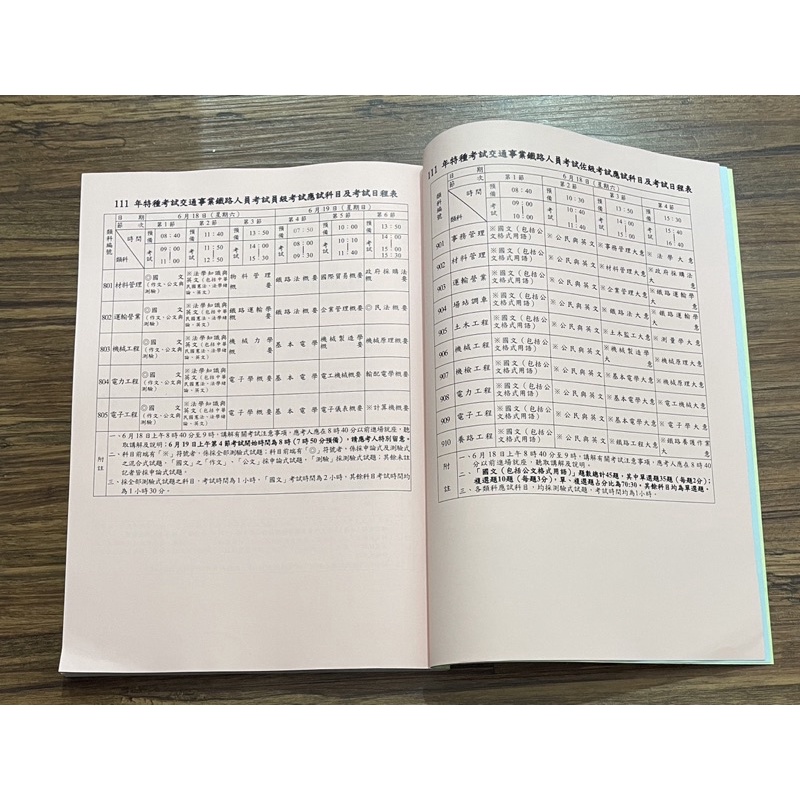 111 年特種考試交通事業鐵路人員考試員級考試應試科目及考試日程表
日期 6月18日(星期六) 6月19日(星期日)
節次 第1節 第2節 第3節 第4節 第5節 第6節
類科編號 時間 類科
預備 08：40 預備 11：40 預備 13：50 預備 07：50 預備 10：10 預備 13：50
考試 09：00 11：00 考試 11：50 12：50 考試 14：00 15：00 考試 08：00 考試 10：20 考試 14：00 15：00 15：30
801 材料管理 ◎國文(作文、公文與測驗) ※法學知識與英文(包括中華民國憲法、法學緒論、英文) 物料管理概要 鐵路法概要 國際貿易概要 政府採購法概要
802 運輸營業 ◎國文(作文、公文與測驗) ※法學知識與英文(包括中華民國憲法、法學緒論、英文) 鐵路運輸學概要 鐵路法概要 企業管理概要 ◎民法概要
803 機械工程 ◎國文(作文、公文與測驗) ※法學知識與英文(包括中華民國憲法、法學緒論、英文) 機械力學概要 基本電學 機械製造學概要 機械原理概要
804 電力工程 ◎國文(作文、公文與測驗) ※法學知識與英文(包括中華民國憲法、法學緒論、英文) 電子學概要 基本電學 電工機械概要 輸配電學概要
805 電子工程 ◎國文(作文、公文與測驗) ※法學知識與英文(包括中華民國憲法、法學緒論、英文) 電子學概要 基本電學 電子儀表概要 ※計算機概要
附註
一、6月18日上午8時40分至9時，講解有關考試注意事項，應考人應在8時40分以前進場就座，聽
取講解及說明；6月19日上午第4節考試開始時間為8時(7時50分預備)，請應考人特別留意。
二、科目前端有「※」符號者，係採全部測驗式試題；科目前端有「◎」符號者，係採申論式及測驗式
之混合式試題，「國文」之「作文」、「公文」採申論式試題，「測驗」採測驗式試題；其餘未註
記者皆採申論式試題。
三、採全部測驗式試題之科目，考試時間為1小時，「國文」考試時間為2小時，其餘科目考試時間均
為1小時30分。
111 年特種考試交通事業鐵路人員考試佐級考試應試科目及考試日程表
日期 6月18日(星期六)
節次 第1節 第2節 第3節 第4節
類科編號 時間 類科
預備 08：40 預備 10：30 預備 13：50 預備 15：30
考試 09：00 10：00 考試 10：40 11：40 考試 14：00 15：00 考試 15：40 16：40
901 事務管理 ※國文(包括公文格式用語) ※公民與英文 ※事務管理大意 ※法學大意
902 材料管理 ※國文(包括公文格式用語) ※公民與英文 ※材料管理大意 ※政府採購法大意
903 運輸營業 ※國文(包括公文格式用語) ※公民與英文 ※企業管理大意 ※鐵路運輸學大意
904 場站調車 ※國文(包括公文格式用語) ※公民與英文 ※鐵路法大意 ※鐵路運輸學大意
905 土木工程 ※國文(包括公文格式用語) ※公民與英文 ※土木監工大意 ※測量學大意
906 機械工程 ※國文(包括公文格式用語) ※公民與英文 ※機械製造學大意 ※機械原理大意
907 機檢工程 ※國文(包括公文格式用語) ※公民與英文 ※基本電學大意 ※機械原理大意
908 電力工程 ※國文(包括公文格式用語) ※公民與英文 ※基本電學大意 ※電工機械大意
909 電子工程 ※國文(包括公文格式用語) ※公民與英文 ※基本電學大意 ※電子學大意
910 養路工程 ※國文(包括公文格式用語) ※公民與英文 ※鐵路工程大意 ※鐵路養護作業大意
附註
一、6月18日上午8時40分至9時，講解有關考試注意事項，應考人應在8時40
分以前進場就座，聽取講解及說明。
二、「國文(包括公文格式用語)」題數總計45題，其中單選題35題(每題2分)；
複選題10題(每題3分)。單、複選題占分比為70:30。其餘科目均為單選題。
三、各類科應試科目，均採測驗式試題，考試時間均為1小時。